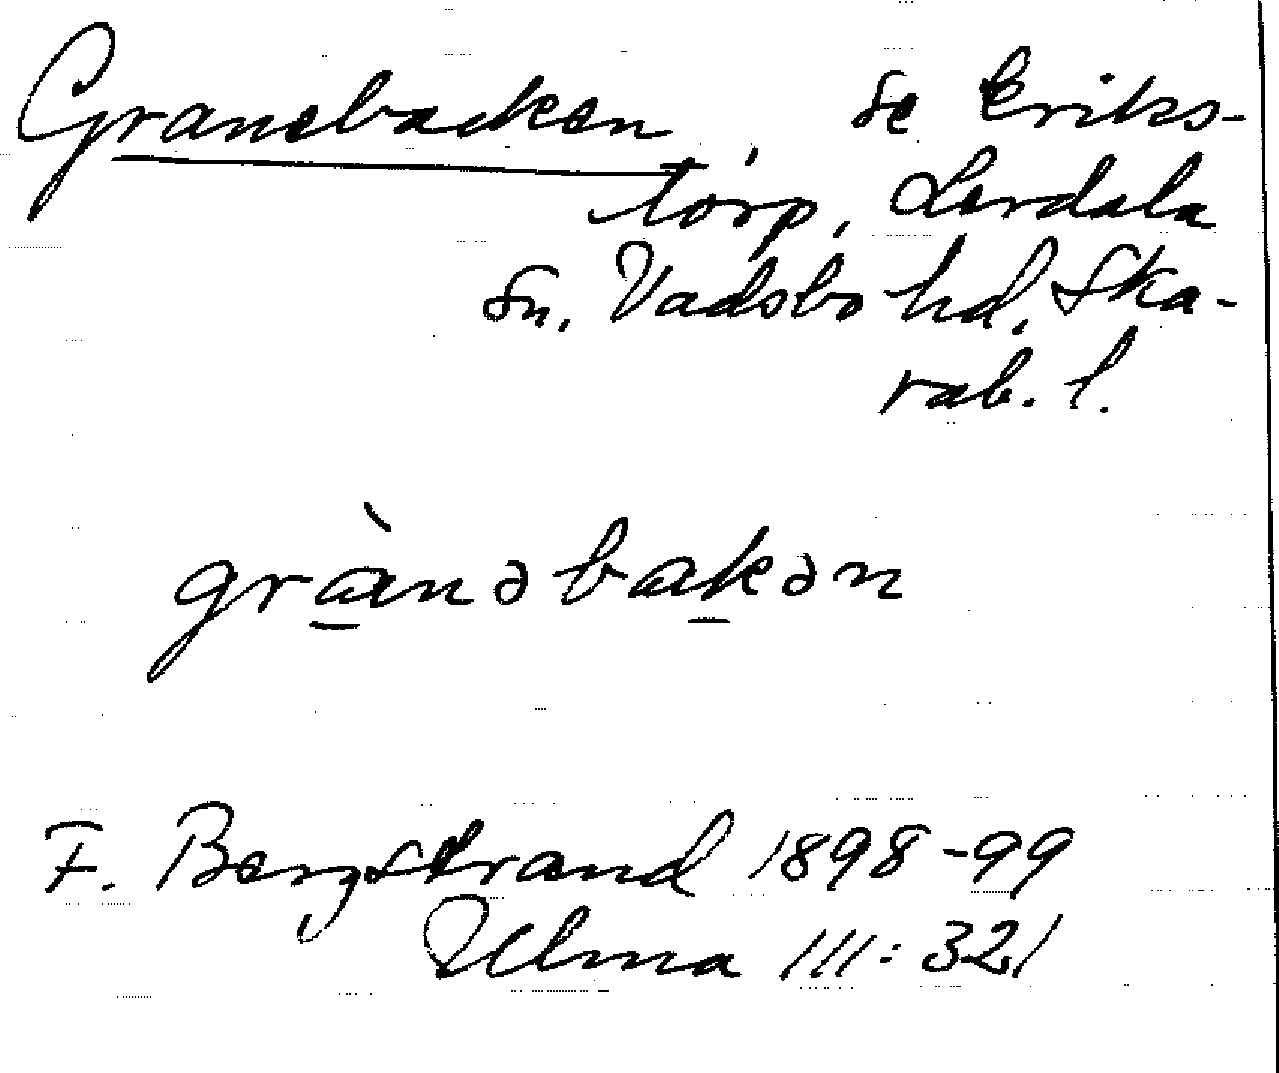 Granebacken, se Eriks-
torp, Lerdala
sn. Vadsbo hd, Ska-
rab. l.
grànəbakən
F. Bergstrand 1898-99
Ulma 111:321